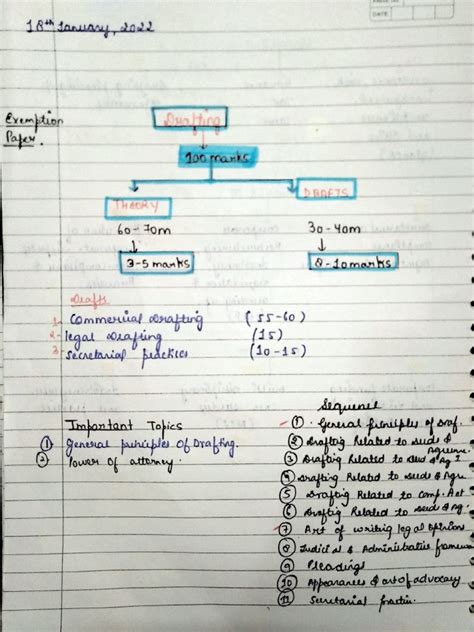 DATE
18th January, 2022
Exemption
Paper.
Drafting
100 marks
THEORY
DRAFTS
60-70m
30-40m
3-5 marks
8-10 marks
Drafts
1- Commercial Drafting (55-60)
2- legal Drafting (15)
3- Secretarial practices (10-15)
Important Topics
① General principles of Drafting.
② Power of attorney.
Sequence
① General principles of Draf.
② Drafting Related to Deeds &
Agreeme.
③ Drafting Related to Deed & Ag I
④ Drafting Related to Deeds & Agre
⑤ Drafting Related to Comp. Act
⑥ Drafting Related to Deeds & Ag.
⑦ Art of writing legal opinion
⑧ Judicial & Administrative framewo
⑨ Pleadings
⑩ Appearances & art of advocacy
⑪ Secretarial Practic.